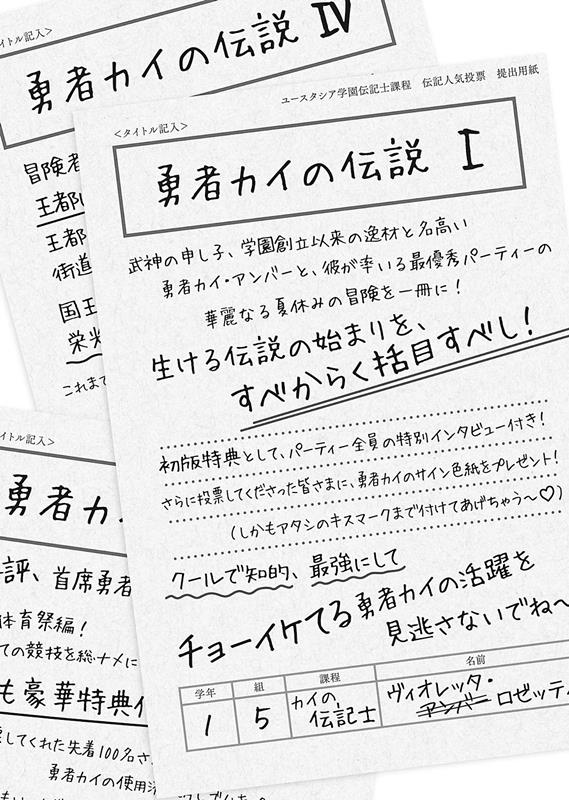 タイトル記入>
勇者カイの伝説 Ⅳ
冒険者
王都
王都
街道
国王
栄光
これまで
ユースタシア学園伝記士課程 伝記人気投票 提出用紙
<タイトル記入>
勇者カイの伝説 Ⅰ
武神の申し子、学園創立以来の逸材と名高い
勇者カイ・アンバーと、彼が率いる最優秀パーティーの
華麗なる夏休みの冒険を一冊に!
生ける伝説の始まりを、
すべからく括目すべし!
初版特典として、パーティー全員の特別インタビュー付き!
さらに投票してくださった皆さまに、勇者カイのサイン色紙をプレゼント!
(しかもアタシのキスマークまで付けてあげちゃう〜♡)
クールで知的、最強にして
チョーイケてる勇者カイの活躍を
見逃さないでね〜
学年 組 課程 名前
1 5 カイの、伝記士 ヴィオレッタ・アンバー ロゼッティ
イトル記入>
勇者カ
評、首席勇者
体育祭編!
ての競技を総ナメに
も豪華特典
票してくれた先着100名さ
勇者カイの使用済